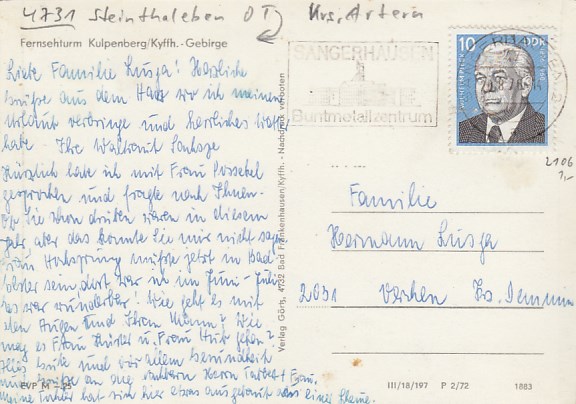 4731 Steinthaleben OT Krs. Artern
Fernsehturm Kulpenberg/Kyffh.-Gebirge
SANGERHAUSEN
Buntmetallzentrum
10 DDR
Liebe Familie Lusga! Herzliche
Grüße aus dem Harz wo ich meinen
Urlaub verbringe und herrliches Wetter
habe. Ihre Waltraut
Kürzlich habe ich mit Frau
gesprochen und fragte nach Ihnen.
Ob Sie schon drüben waren in diesem
Jahr aber das konnte Sie mir nicht sagen
müßte jetzt in Bad
sein, dort war ich im Juni-Juli
es war wunderbar! Wie geht es mit
den Augen und Ihrem Mann? Wie
mag es Frau und Frau gehen?
Alles Gute und vor allem Gesundheit
und Grüße an Herrn + Frau.
Meine Tochter hat sich hier etwas ausgeruht
Verlag Görtz, 4732 Bad Frankenhausen/Kyffh. - Nachdruck verboten
2106
1,-
Familie
Hermann Lusga
2031 Verchen Kr. Demmin
EVP M -,25
III/18/197 P 2/72 1883